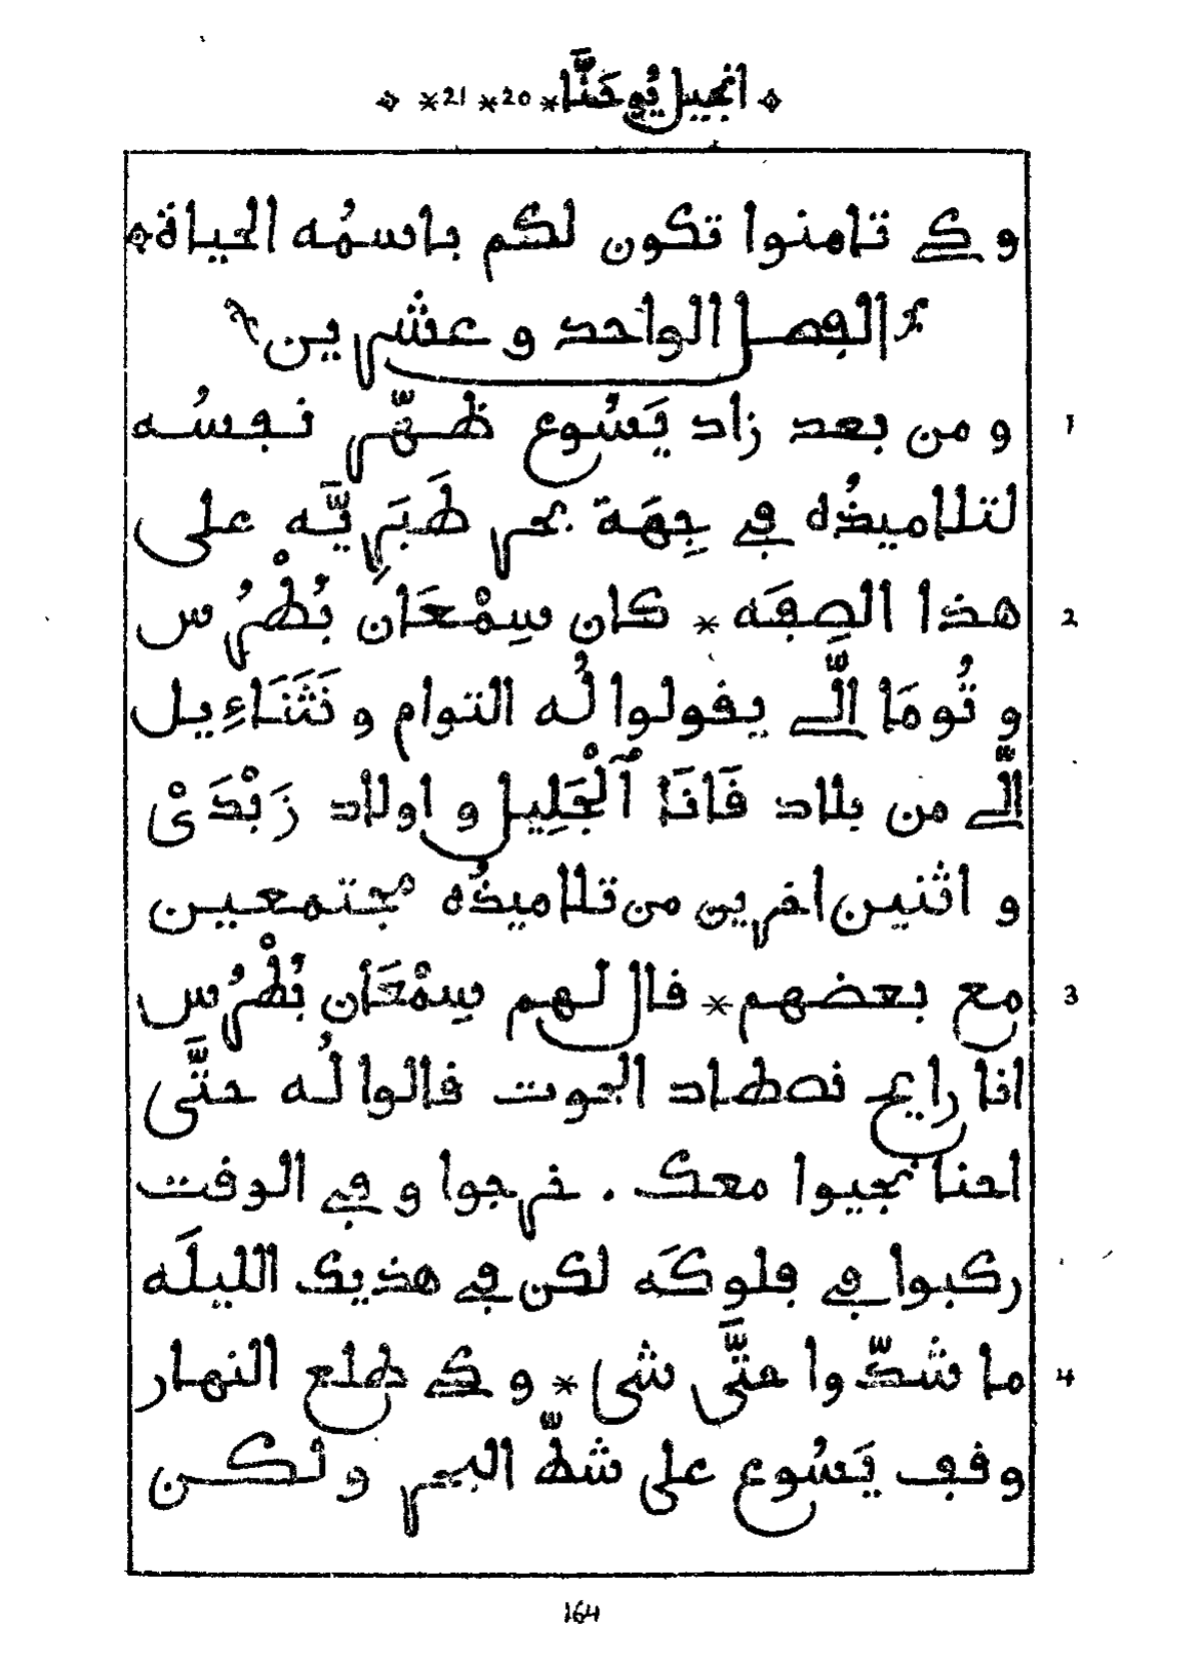 انجيل يُوحَنَّا * 20 * 21 *
و كي تامنوا تكون لكم باسمُه الحياة
الفصل الواحد و عشرين
1 و من بعد زاد يَسُوع ظهّر نفسُه
لتلاميذُه في جِهَة بحر طَبَرِيَّه على
2 هذا الصِفَه * كان سِمْعَان بُطْرُس
و تُومَا الَّي يقولوا لُه التوام و نَثَنَاءِيل
الَّي من بلاد قَانَا ٱلْجَلِيل و اولاد زَبْدَىْ
و اثنين اخرين من تلاميذُه مجتمعين
3 مع بعضهم * قال لهم سِمْعَان بُطْرُس
انا رايح نصطاد الحوت قالوا لُه حتَّى
احنا نجيوا معك . خرجوا و في الوقت
ركبوا في فلوكَه لكن في هذيك الليلَه
4 ما شدّوا حتَّى شي * و كي طلع النهار
وقف يَسُوع على شطّ البحر و لكن
164